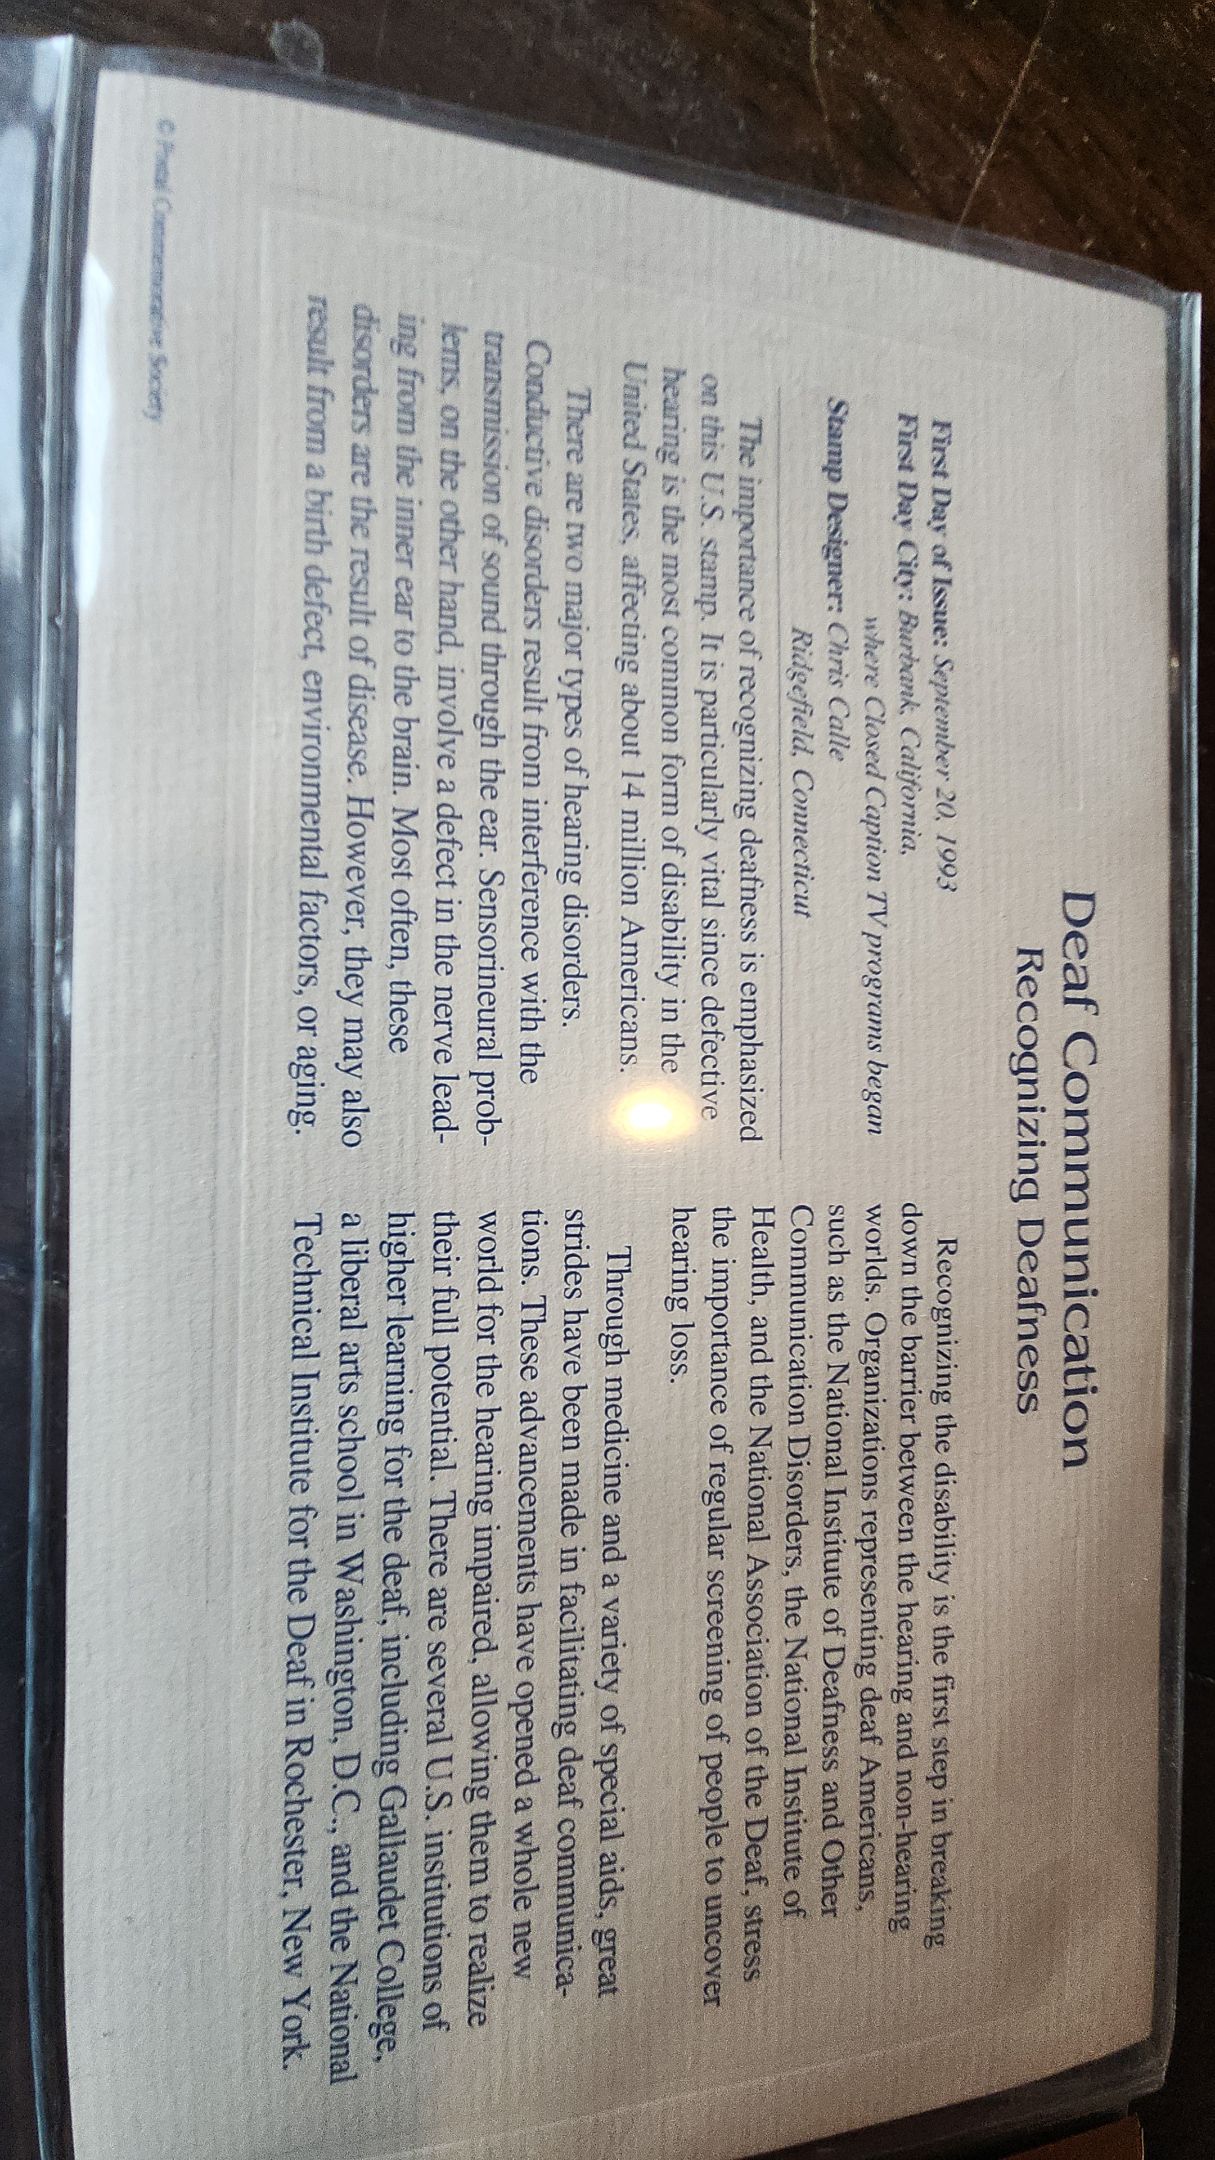 Deaf Communication
Recognizing Deafness
First Day of Issue: September 20, 1993
First Day City: Burbank, California,
where Closed Caption TV programs began
Stamp Designer: Chris Calle
Ridgefield, Connecticut
The importance of recognizing deafness is emphasized
on this U.S. stamp. It is particularly vital since defective
hearing is the most common form of disability in the
United States, affecting about 14 million Americans.
There are two major types of hearing disorders.
Conductive disorders result from interference with the
transmission of sound through the ear. Sensorineural prob-
lems, on the other hand, involve a defect in the nerve lead-
ing from the inner ear to the brain. Most often, these
disorders are the result of disease. However, they may also
result from a birth defect, environmental factors, or aging.
Recognizing the disability is the first step in breaking
down the barrier between the hearing and non-hearing
worlds. Organizations representing deaf Americans,
such as the National Institute of Deafness and Other
Communication Disorders, the National Institute of
Health, and the National Association of the Deaf, stress
the importance of regular screening of people to uncover
hearing loss.
Through medicine and a variety of special aids, great
strides have been made in facilitating deaf communica-
tions. These advancements have opened a whole new
world for the hearing impaired, allowing them to realize
their full potential. There are several U.S. institutions of
higher learning for the deaf, including Gallaudet College,
a liberal arts school in Washington, D.C., and the National
Technical Institute for the Deaf in Rochester, New York.
© Postal Commemorative Society